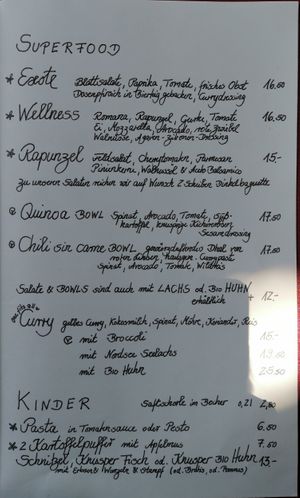 SUPERFOOD
* Exote Blattsalate, Paprika, Tomate, frisches Obst 16,50
Dosenpfirsich in Bierteig gebacken, Currydressing
* Wellness Romana, Rapunzel, Gurke, Tomate 16,50
Ei, Mozzarella, Avocado, rote Zwiebel
Walnüsse, Agaven-Zitronen-Dressing
* Rapunzel Feldsalat, Champignon, Parmesan 15,-
Pinienkerne, Walnussöl & Aceto Balsamico
Zu unseren Salaten reichen wir auf Wunsch 2 Scheiben Dinkelbaguette
Quinoa BOWL Spinat, Avocado, Tomate, Süß- 17,50
kartoffel, knusprige Kichererbsen
Sesamdressing
Chili sin Carne BOWL 17,50
roten Linsen,
Spinat, Avocado, Tomate, Wildreis
Salate & BOWLS sind auch mit LACHS od. BIO HUHN
erhältlich + 12,-
Curry gelbes Curry, Kokosmilch, Spinat, Möhre, Koriander, Reis
mit Broccoli 16,-
mit Nordsee Seelachs 19,50
mit Bio Huhn 25,50
KINDER Saftschorle im Becher 0,2l 2,80
* Pasta in Tomatensauce oder Pesto 6,50
* 2 Kartoffelpuffer mit Apfelmus 7,50
Schnitzel, Knusper Fisch od. Knusper BIO Huhn 13,-
mit Erbsen & Wurzeln & Stampf (od. Bratis, od. Pommes)